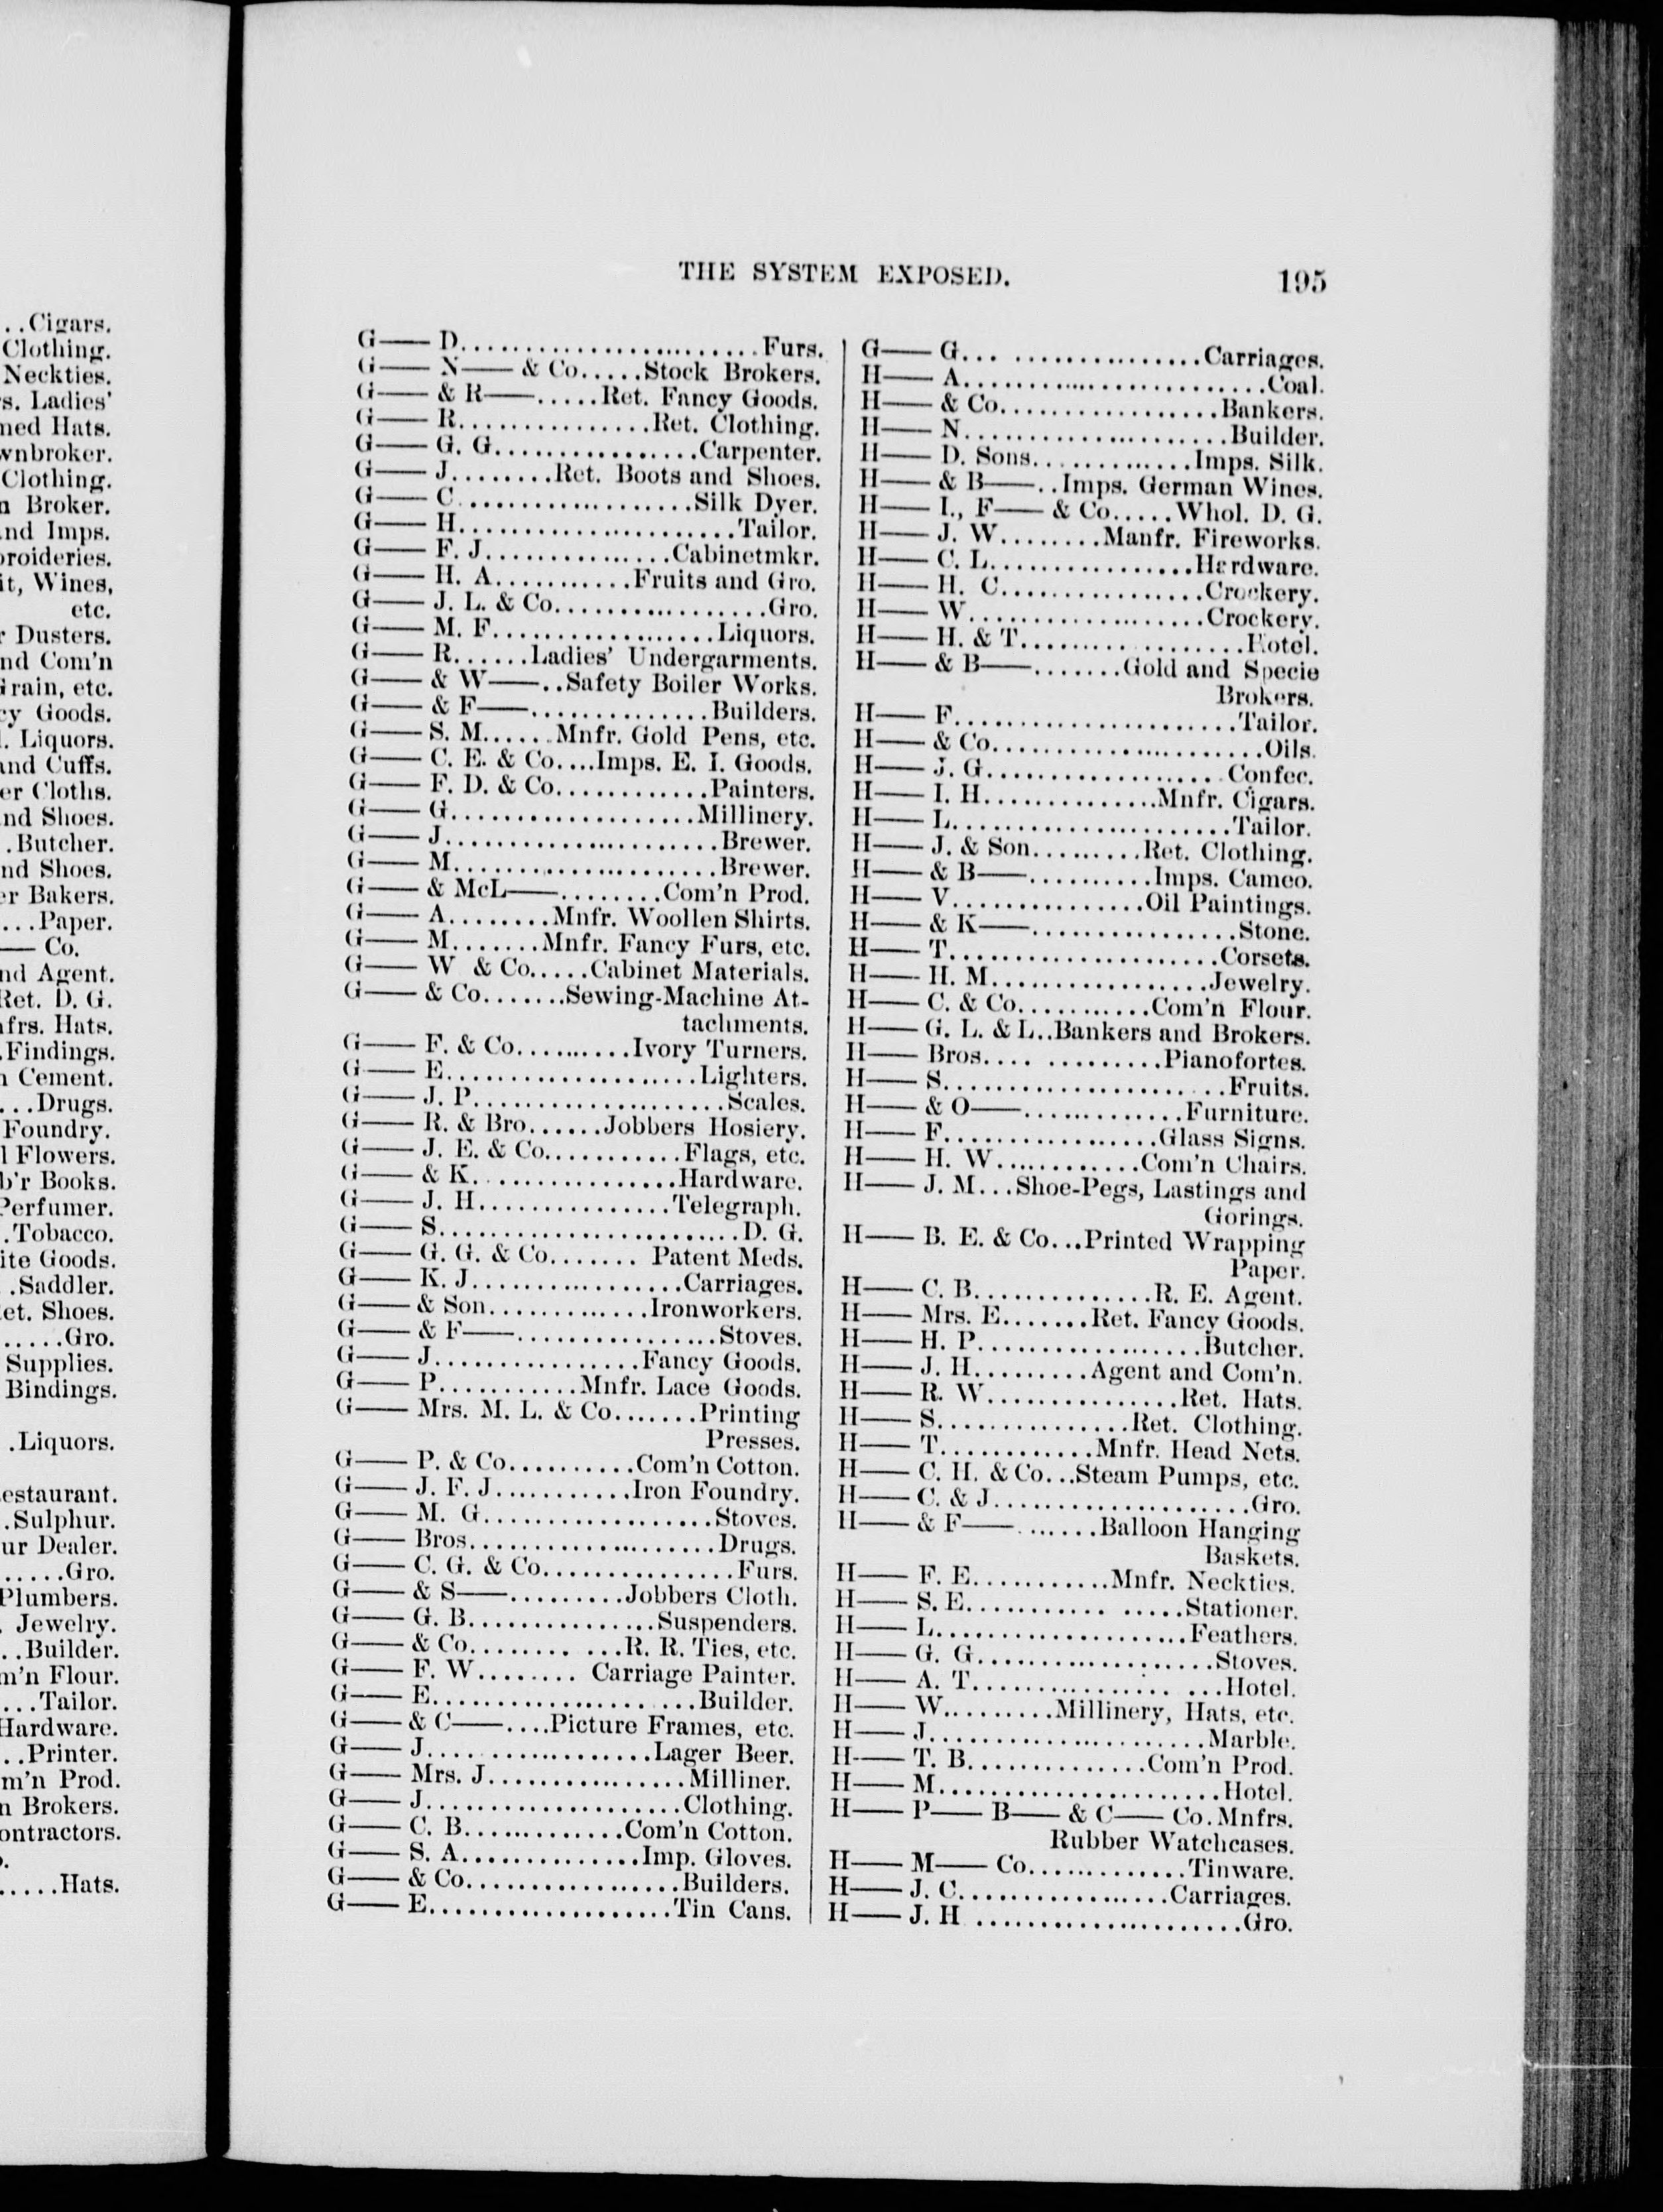 ..Cigars.
Clothing.
Neckties.
s. Ladies'
med Hats.
wnbroker.
Clothing.
n Broker.
and Imps.
broideries.
it, Wines,
etc.
r Dusters.
nd Com'n
Grain, etc.
cy Goods.
l. Liquors.
and Cuffs.
er Cloths.
nd Shoes.
.Butcher.
nd Shoes.
er Bakers.
...Paper.
—— Co.
nd Agent.
Ret. D. G.
nfrs. Hats.
.Findings.
n Cement.
...Drugs.
Foundry.
l Flowers.
b'r Books.
Perfumer.
.Tobacco.
ite Goods.
..Saddler.
et. Shoes.
.....Gro.
Supplies.
Bindings.
.Liquors.
estaurant.
.Sulphur.
ur Dealer.
.....Gro.
Plumbers.
. Jewelry.
..Builder.
m'n Flour.
...Tailor.
Hardware.
..Printer.
m'n Prod.
n Brokers.
ontractors.
.....Hats.
THE SYSTEM EXPOSED. 195
G—— D........................Furs.
G—— N—— & Co.....Stock Brokers.
G—— & R——.....Ret. Fancy Goods.
G—— R...............Ret. Clothing.
G—— G. G................Carpenter.
G—— J........Ret. Boots and Shoes.
G—— C...................Silk Dyer.
G—— H......................Tailor.
G—— F. J...............Cabinetmkr.
G—— H. A...........Fruits and Gro.
G—— J. L. & Co.................Gro.
G—— M. F..................Liquors.
G—— R......Ladies' Undergarments.
G—— & W——..Safety Boiler Works.
G—— & F——..............Builders.
G—— S. M......Mnfr. Gold Pens, etc.
G—— C. E. & Co....Imps. E. I. Goods.
G—— F. D. & Co............Painters.
G—— G...................Millinery.
G—— J......................Brewer.
G—— M.....................Brewer.
G—— & McL——........Com'n Prod.
G—— A........Mnfr. Woollen Shirts.
G—— M.......Mnfr. Fancy Furs, etc.
G—— W & Co.....Cabinet Materials.
G—— & Co.......Sewing-Machine At-
tachments.
G—— F. & Co.........Ivory Turners.
G—— E....................Lighters.
G—— J. P....................Scales.
G—— R. & Bro......Jobbers Hosiery.
G—— J. E. & Co...........Flags, etc.
G—— & K................Hardware.
G—— J. H...............Telegraph.
G—— S........................D. G.
G—— G. G. & Co....... Patent Meds.
G—— K. J.................Carriages.
G—— & Son.............Ironworkers.
G—— & F——................Stoves.
G—— J................Fancy Goods.
G—— P...........Mnfr. Lace Goods.
G—— Mrs. M. L. & Co.......Printing
Presses.
G—— P. & Co..........Com'n Cotton.
G—— J. F. J...........Iron Foundry.
G—— M. G..................Stoves.
G—— Bros....................Drugs.
G—— C. G. & Co...............Furs.
G—— & S——.........Jobbers Cloth.
G—— G. B...............Suspenders.
G—— & Co............R. R. Ties, etc.
G—— F. W........ Carriage Painter.
G—— E.....................Builder.
G—— & C——....Picture Frames, etc.
G—— J..................Lager Beer.
G—— Mrs. J................Milliner.
G—— J....................Clothing.
G—— C. B.............Com'n Cotton.
G—— S. A..............Imp. Gloves.
G—— & Co.................Builders.
G—— E...................Tin Cans.
G—— G...................Carriages.
H—— A........................Coal.
H—— & Co.................Bankers.
H—— N.....................Builder.
H—— D. Sons.............Imps. Silk.
H—— & B——..Imps. German Wines.
H—— I., F—— & Co.....Whol. D. G.
H—— J. W........Manfr. Fireworks.
H—— C. L................Hardware.
H—— H. C................Crockery.
H—— W...................Crockery.
H—— H. & T.................Hotel.
H—— & B——.......Gold and Specie
Brokers.
H—— F......................Tailor.
H—— & Co.....................Oils.
H—— J. G...................Confec.
H—— I. H..............Mnfr. Cigars.
H—— L......................Tailor.
H—— J. & Son.........Ret. Clothing.
H—— & B——..........Imps. Cameo.
H—— V...............Oil Paintings.
H—— & K——................Stone.
H—— T.....................Corsets.
H—— H. M.................Jewelry.
H—— C. & Co...........Com'n Flour.
H—— G. L. & L..Bankers and Brokers.
H—— Bros.............Pianofortes.
H—— S......................Fruits.
H—— & O——.............Furniture.
H—— F.................Glass Signs.
H—— H. W............Com'n Chairs.
H—— J. M...Shoe-Pegs, Lastings and
Gorings.
H—— B. E. & Co...Printed Wrapping
Paper.
H—— C. B..............R. E. Agent.
H—— Mrs. E.......Ret. Fancy Goods.
H—— H. P..................Butcher.
H—— J. H.........Agent and Com'n.
H—— R. W...............Ret. Hats.
H—— S...............Ret. Clothing.
H—— T............Mnfr. Head Nets.
H—— C. H. & Co...Steam Pumps, etc.
H—— C. & J....................Gro.
H—— & F——.......Balloon Hanging
Baskets.
H—— F. E...........Mnfr. Neckties.
H—— S. E................Stationer.
H—— L....................Feathers.
H—— G. G...................Stoves.
H—— A. T...................Hotel.
H—— W.........Millinery, Hats, etc.
H—— J......................Marble.
H—— T. B..............Com'n Prod.
H—— M......................Hotel.
H—— P—— B—— & C—— Co.Mnfrs.
Rubber Watchcases.
H—— M—— Co.............Tinware.
H—— J. C.................Carriages.
H—— J. H .....................Gro.